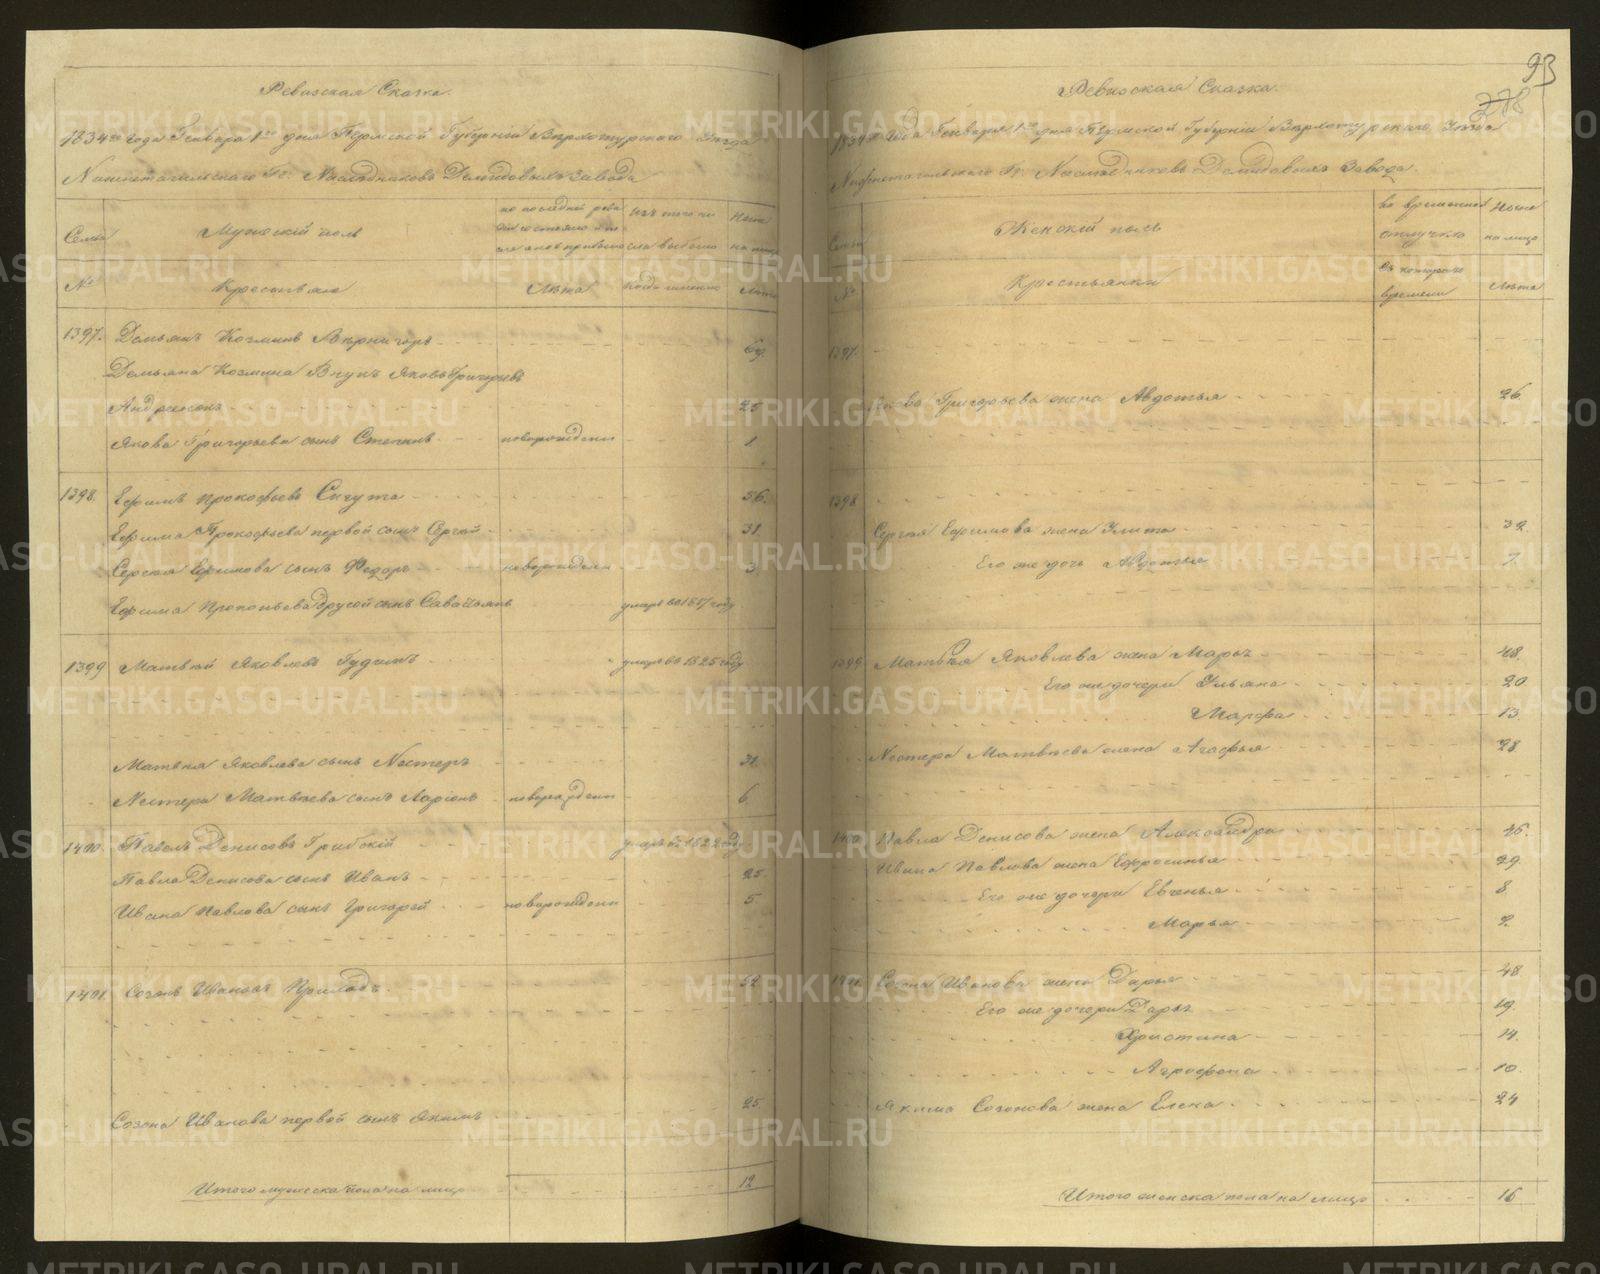 Ревизская Сказка.
1834го года Генваря 1го дня Пермской Губерніи Верхотурскаго Уезда
Нижнетагильскаго Гг. Наследниковъ Демидовыхъ Завода
Семьи
Мужескій полъ
по последней реви
Изъ того чи
Ныне
сла выбыло
на лицо
№
Крестьяне
Лѣта
когда именно
Лѣта
1397.
Демьянъ Козминъ 69.
Демьяна Козмина Внукъ Яковъ Григорьевъ
25
Якова Григорьева сынъ Степанъ новорожденъ 1
1398. Ефимъ Прокофьевъ Сичута 56.
Ефима Прокофьева первой сынъ Сергей 31.
Сергея Ефимова сынъ Федоръ новорожденъ 3.
Ефима Прокопьева другой сынъ умеръ году
1399 Матвей Яковлевъ Гудимъ умеръ въ 1825 году
Матвея Яковлева сынъ Нестеръ 31.
Нестера Матвеева сынъ Ларіонъ новорожденъ 6
1400. Павелъ Денисовъ Грибской умеръ году
Павла Денисова сынъ Иванъ 25.
Ивана Павлова сынъ Григорей новорожденъ 5
1401. Созонъ Ивановъ 52
Созона Иванова первой сынъ Якимъ 25.
Итого мужеска пола на лицо 12
93
278
Ревизская Сказка.
1834го года Генваря 1го дня Пермской Губерніи Верхотурскаго Уезда
Нижнетагильскаго Гг. Наследниковъ Демидовыхъ Завода.
Семьи
Женскій полъ
Во временной
отлучкѣ
Ныне
на лицо
№
Крестьянки
Съ котораго
времени
Лѣта
1397.
Якова Григорьева жена Авдотья 26.
1398
Сергея Ефимова жена Улита 32.
Его же дочь Авдотья 7.
1399 Матвея Яковлева жена Марья 48.
Его же дочери Ульяна 20
Марфа 13.
Нестера Матвеева жена Агафья 28
1400. Павла Денисова жена Александра 46.
Ивана Павлова жена Ефросинья 29.
Его же дочери Евгенья 8.
Марья 2.
1401. Созона Иванова жена Дарья 48.
Его же дочери Дарья 19.
Христина 14.
Агрофена 10.
Якима Созонова жена Елена 24
Итого женска пола на лицо 16
METRIKI.GASO-URAL.RU